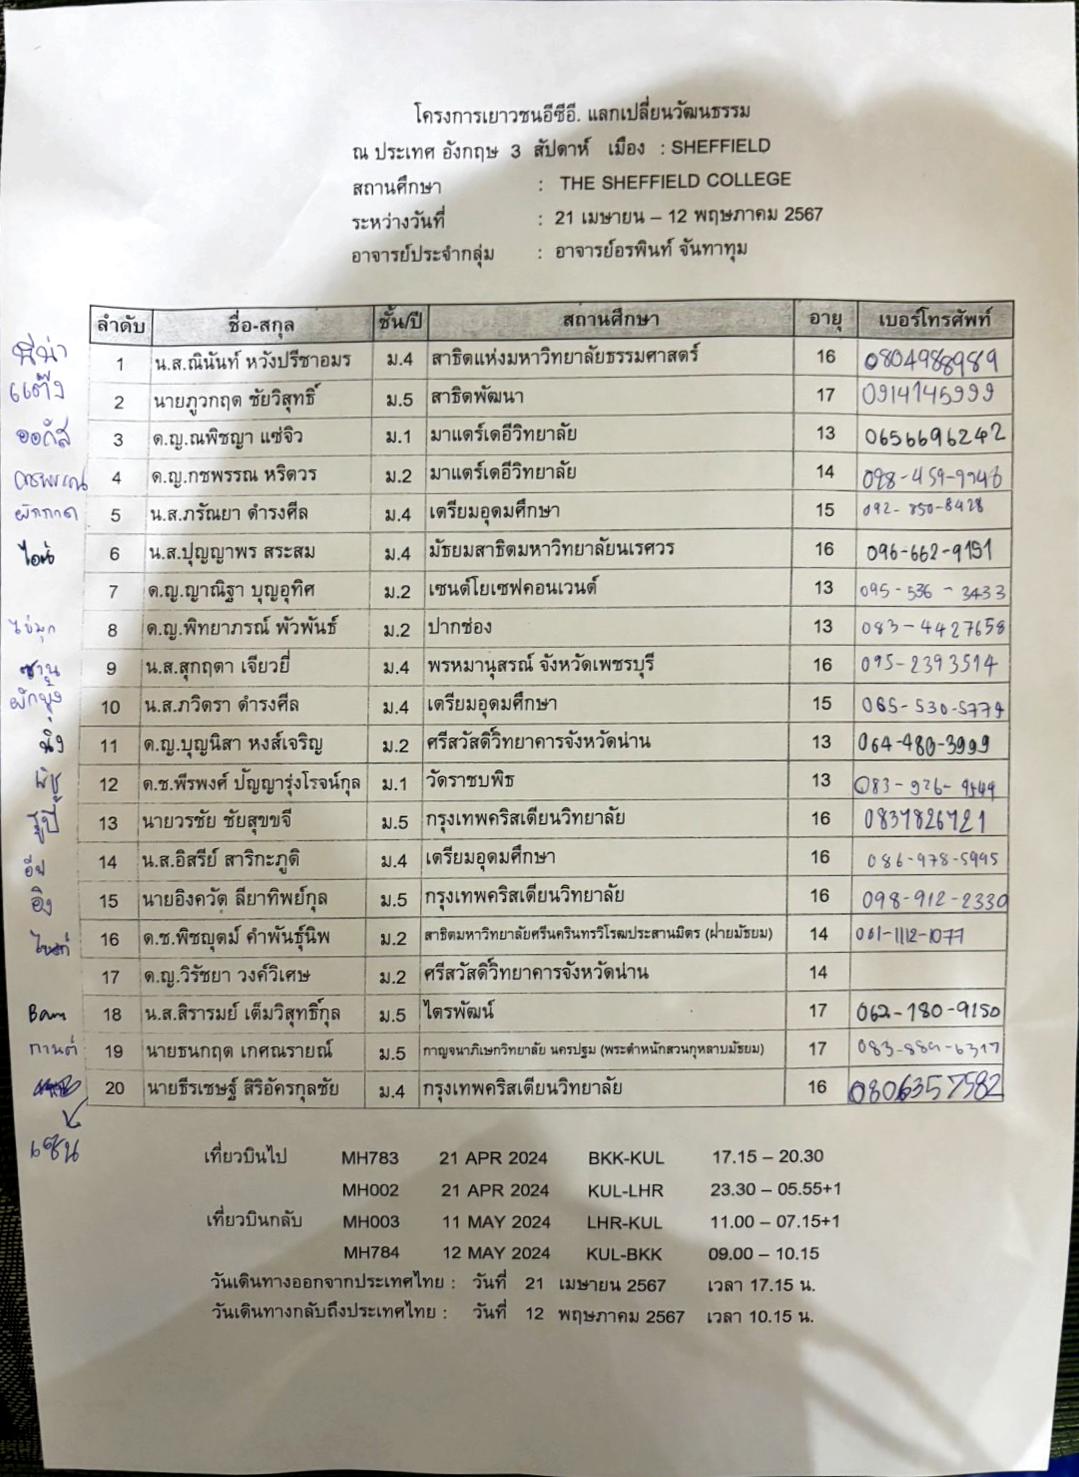 โครงการเยาวชนอีซีอี. แลกเปลี่ยนวัฒนธรรม
ณ ประเทศ อังกฤษ 3 สัปดาห์ เมือง : SHEFFIELD
สถานศึกษา : THE SHEFFIELD COLLEGE
ระหว่างวันที่ : 21 เมษายน – 12 พฤษภาคม 2567
อาจารย์ประจำกลุ่ม : อาจารย์อรพินท์ จันทาทุม
ลำดับ ชื่อ-สกุล ชั้น/ปี สถานศึกษา อายุ เบอร์โทรศัพท์
1 น.ส.ณินันท์ หวังปรีชาอมร ม.4 สาธิตแห่งมหาวิทยาลัยธรรมศาสตร์ 16 0804988989
แต๊ง 2 นายภูวกฤต ชัยวิสุทธิ์ ม.5 สาธิตพัฒนา 17 0914145999
ออกัส 3 ด.ญ.ณพิชญา แซ่จิว ม.1 มาแตร์เดอีวิทยาลัย 13 0656696242
กชพรรณ 4 ด.ญ.กชพรรณ หริตวร ม.2 มาแตร์เดอีวิทยาลัย 14
ผักกาด 5 น.ส.ภรัณยา ดำรงศีล ม.4 เตรียมอุดมศึกษา 15 092-850-8428
ไอน์ 6 น.ส.ปุญญาพร สระสม ม.4 มัธยมสาธิตมหาวิทยาลัยนเรศวร 16 096-662-9151
7 ด.ญ.ญาณิฐา บุญอุทิศ ม.2 เซนต์โยเซฟคอนเวนต์ 13 095-536-3433
ไข่มุก 8 ด.ญ.พิทยาภรณ์ พัวพันธ์ ม.2 ปากช่อง 13 083-4427658
ซานู 9 น.ส.สุกฤตา เจียวยี่ ม.4 พรหมานุสรณ์ จังหวัดเพชรบุรี 16 095-2393514
ผักบุ้ง 10 น.ส.ภวิตรา ดำรงศีล ม.4 เตรียมอุดมศึกษา 15 085-530-5774
นิ้ง 11 ด.ญ.บุญนิสา หงส์เจริญ ม.2 ศรีสวัสดิ์วิทยาคารจังหวัดน่าน 13 064-480-3999
พีช 12 ด.ช.พีรพงศ์ ปัญญารุ่งโรจน์กุล ม.1 วัดราชบพิธ 13
13 นายวรชัย ชัยสุขขจี ม.5 กรุงเทพคริสเตียนวิทยาลัย 16 0837826721
14 น.ส.อิสรีย์ สาริกะภูติ ม.4 เตรียมอุดมศึกษา 16 086-978-5995
อิง 15 นายอิงควัต ลียาทิพย์กุล ม.5 กรุงเทพคริสเตียนวิทยาลัย 16 098-912-2330
16 ด.ช.พิชญุตม์ คำพันธุ์นิพ ม.2 สาธิตมหาวิทยาลัยศรีนครินทรวิโรฒประสานมิตร (ฝ่ายมัธยม) 14 061-1112-1077
17 ด.ญ.วิรัชยา วงค์วิเศษ ม.2 ศรีสวัสดิ์วิทยาคารจังหวัดน่าน 14
Bam 18 น.ส.สิรารมย์ เต็มวิสุทธิ์กุล ม.5 ไตรพัฒน์ 17 062-180-9150
กานต์ 19 นายธนกฤต เกศณรายณ์ ม.5 กาญจนาภิเษกวิทยาลัย นครปฐม (พระตำหนักสวนกุหลาบมัธยม) 17 083-889-6317
20 นายธีรเชษฐ์ สิริอัครกุลชัย ม.4 กรุงเทพคริสเตียนวิทยาลัย 16 0806357582
เซน
เที่ยวบินไป MH783 21 APR 2024 BKK-KUL 17.15 – 20.30
MH002 21 APR 2024 KUL-LHR 23.30 – 05.55+1
เที่ยวบินกลับ MH003 11 MAY 2024 LHR-KUL 11.00 – 07.15+1
MH784 12 MAY 2024 KUL-BKK 09.00 – 10.15
วันเดินทางออกจากประเทศไทย : วันที่ 21 เมษายน 2567 เวลา 17.15 น.
วันเดินทางกลับถึงประเทศไทย : วันที่ 12 พฤษภาคม 2567 เวลา 10.15 น.